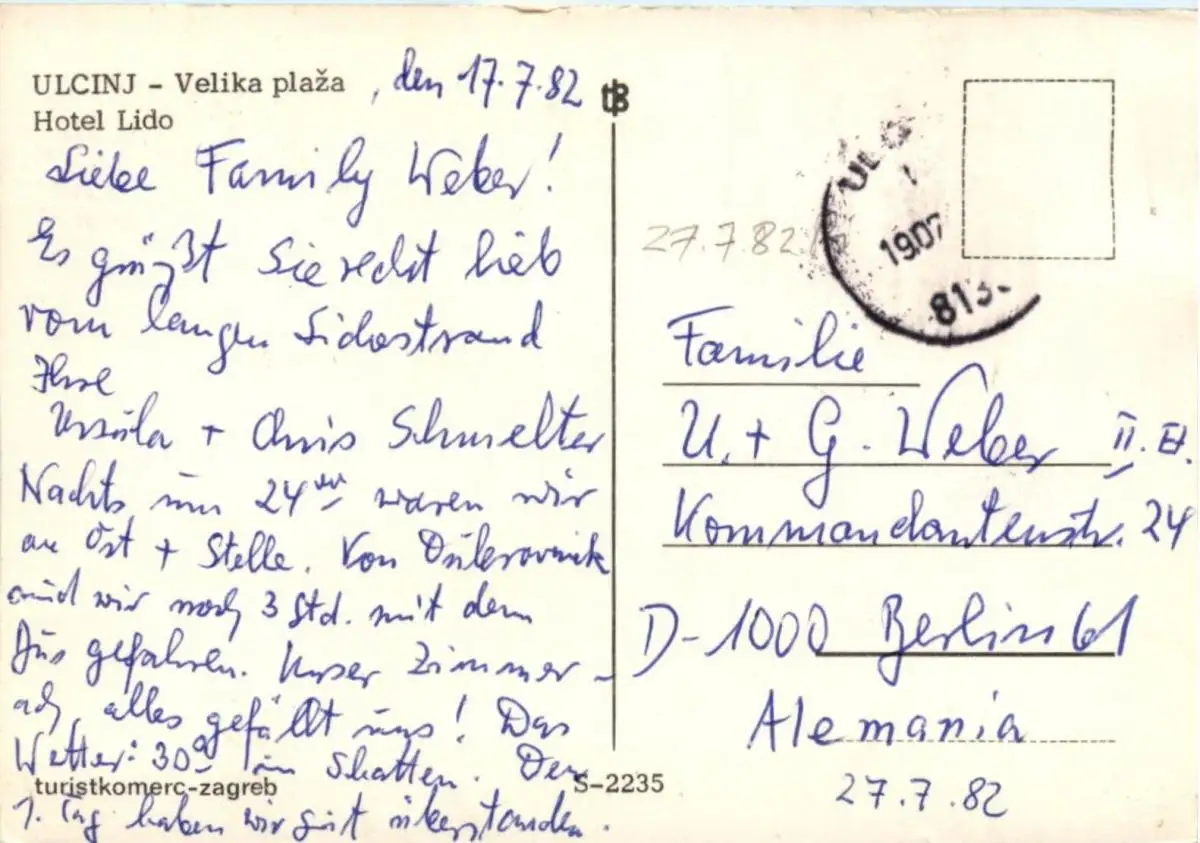 ULCINJ – Velika plaža , den 17.7.82
Hotel Lido
Liebe Family Weber!
Es grüßt Sie recht lieb
vom langen Lidostrand
Ihre
Ursula + Chris Schmelter
Nachts um 24 waren wir
an Ort + Stelle. Von Dubrovnik
sind wir noch 3 Std. mit dem
Bus gefahren. Unser Zimmer –
ach, alles gefällt uns! Das
Wetter: 30° im Schatten. Den
turistkomerc-zagreb
1. Tag haben wir gut überstanden.
S-2235
27.7.82
1907
813
Familie
U. + G. Weber II. Et.
Kommandantenstr. 24
D-1000 Berlin 61
Alemania
27.7.82